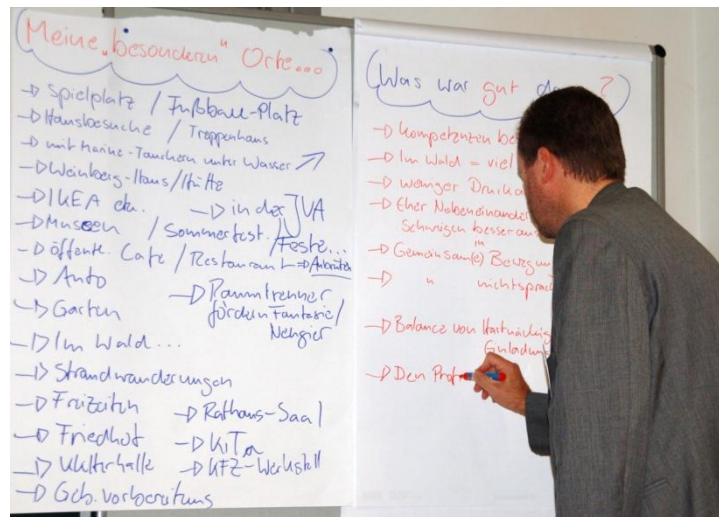 Meine „besonderen" Orte...
→ Spielplatz / Fußball-Platz
→ Hausbesuche / Treppenhaus
→ mit Marine-Tauchern unter Wasser
→ Weinberg-Haus/Hütte
→ IKEA etc. → in der JVA
→ Museen / Sommerfest / Feste...
→ öffentl. Cafe / Restaurant
→ Auto → Raumtrenner
fördern Fantasie/
→ Garten Neugier
→ Im Wald...
→ Strandwanderungen
→ Freizeiten → Rathaus-Saal
→ Friedhof → KiTa
→ Kletterhalle → KFZ-Werkstatt
→ Geb.vorbereitung
Was war gut ?
→ Kompetenzen
→ Im Wald = viel
→ weniger Druck
→ Eher Nebeneinander
Schweigen besser
→ Gemeinsam(e) in Bewegun
→ " nichtsprac
→ Balance von Hartnäckig
Einladun
→ Den Prof